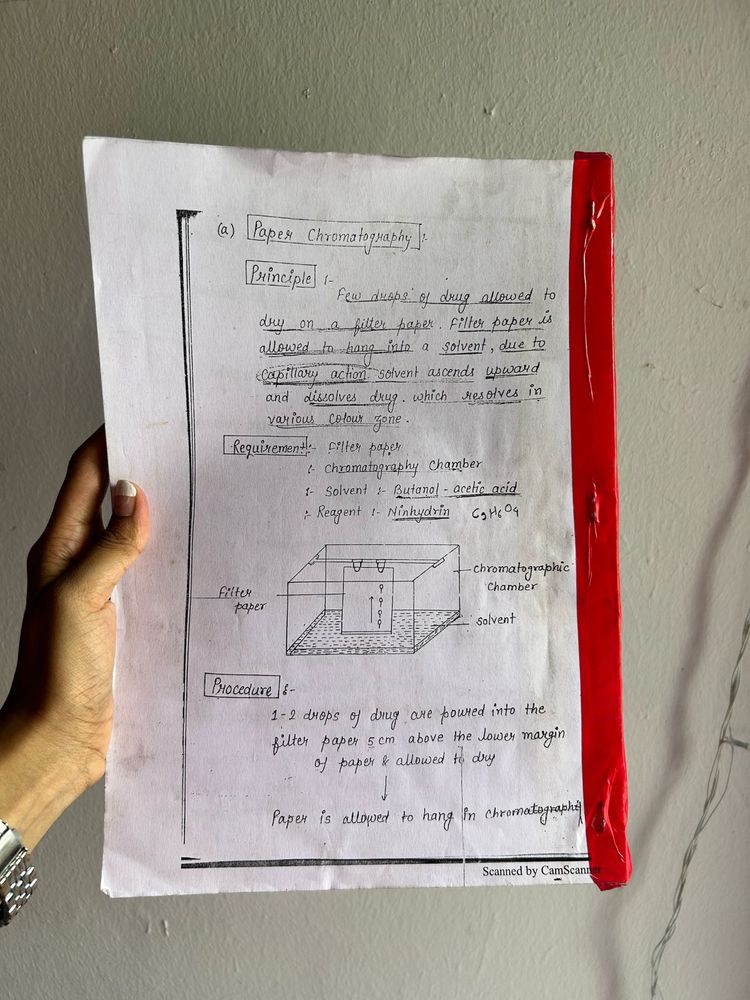 (a) Paper Chromatography :-
Principle :-
Few drops of drug allowed to
dry on a filter paper. Filter paper is
allowed to hang into a solvent, due to
Capillary action solvent ascends upward
and dissolves drug. which resolves in
various colour zone.
Requirement :- Filter paper
:- Chromatography Chamber
:- Solvent :- Butanol - acetic acid
:- Reagent :- Ninhydrin C9H6O4
Filter
paper
chromatographic
Chamber
solvent
Procedure :-
1-2 drops of drug are poured into the
filter paper 5 cm above the lower margin
of paper & allowed to dry
↓
Paper is allowed to hang in chromatography
Scanned by CamScanner